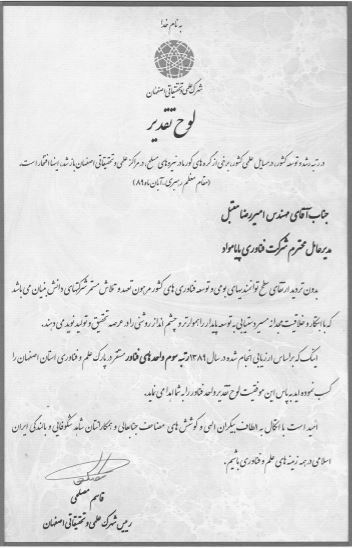 به نام خدا
شهرک علمی و تحقیقاتی اصفهان
لوح تقدیر
در رتبه رشد و توسعه کشور، در مسایل علمی کشور، برخی از گره های کور ما در نیروهای مسلح، در مراکز علمی و تحقیقاتی اصفهان باز شد، اینها افتخار است.
(مقام معظم رهبری، آبان ماه ۸۹)
جناب آقای مهندس امیررضا مقبل
مدیرعامل محترم شرکت فناوری پایامواد
بدون تردید ارتقای سطح توانمندیهای بومی و توسعه فناوری های کشور مرهون تعهد و تلاش مستمر شرکتهای دانش بنیان می باشد
که با ابتکار و خلاقیت مجدانه مسیر دستیابی به توسعه پایدار را هموارتر و چشم انداز روشنی را در عرصه تحقیق و تولید نوید می دهند.
اینک که بر اساس ارزیابی انجام شده در سال ۱۳۸۹ رتبه سوم واحدهای فناور مستقر در پارک علم و فناوری استان اصفهان را
کسب نموده اید به پاس این موفقیت لوح تقدیر واحد فناور را به شما اهدا می نماید.
امید است با اتکال به الطاف بیکران الهی و کوشش های مضاعف جنابعالی و همکارانتان شاهد شکوفایی و بالندگی ایران
اسلامی در همه زمینه های علم و فناوری باشیم.
قاسم مصلحی
رییس شهرک علمی و تحقیقاتی اصفهان